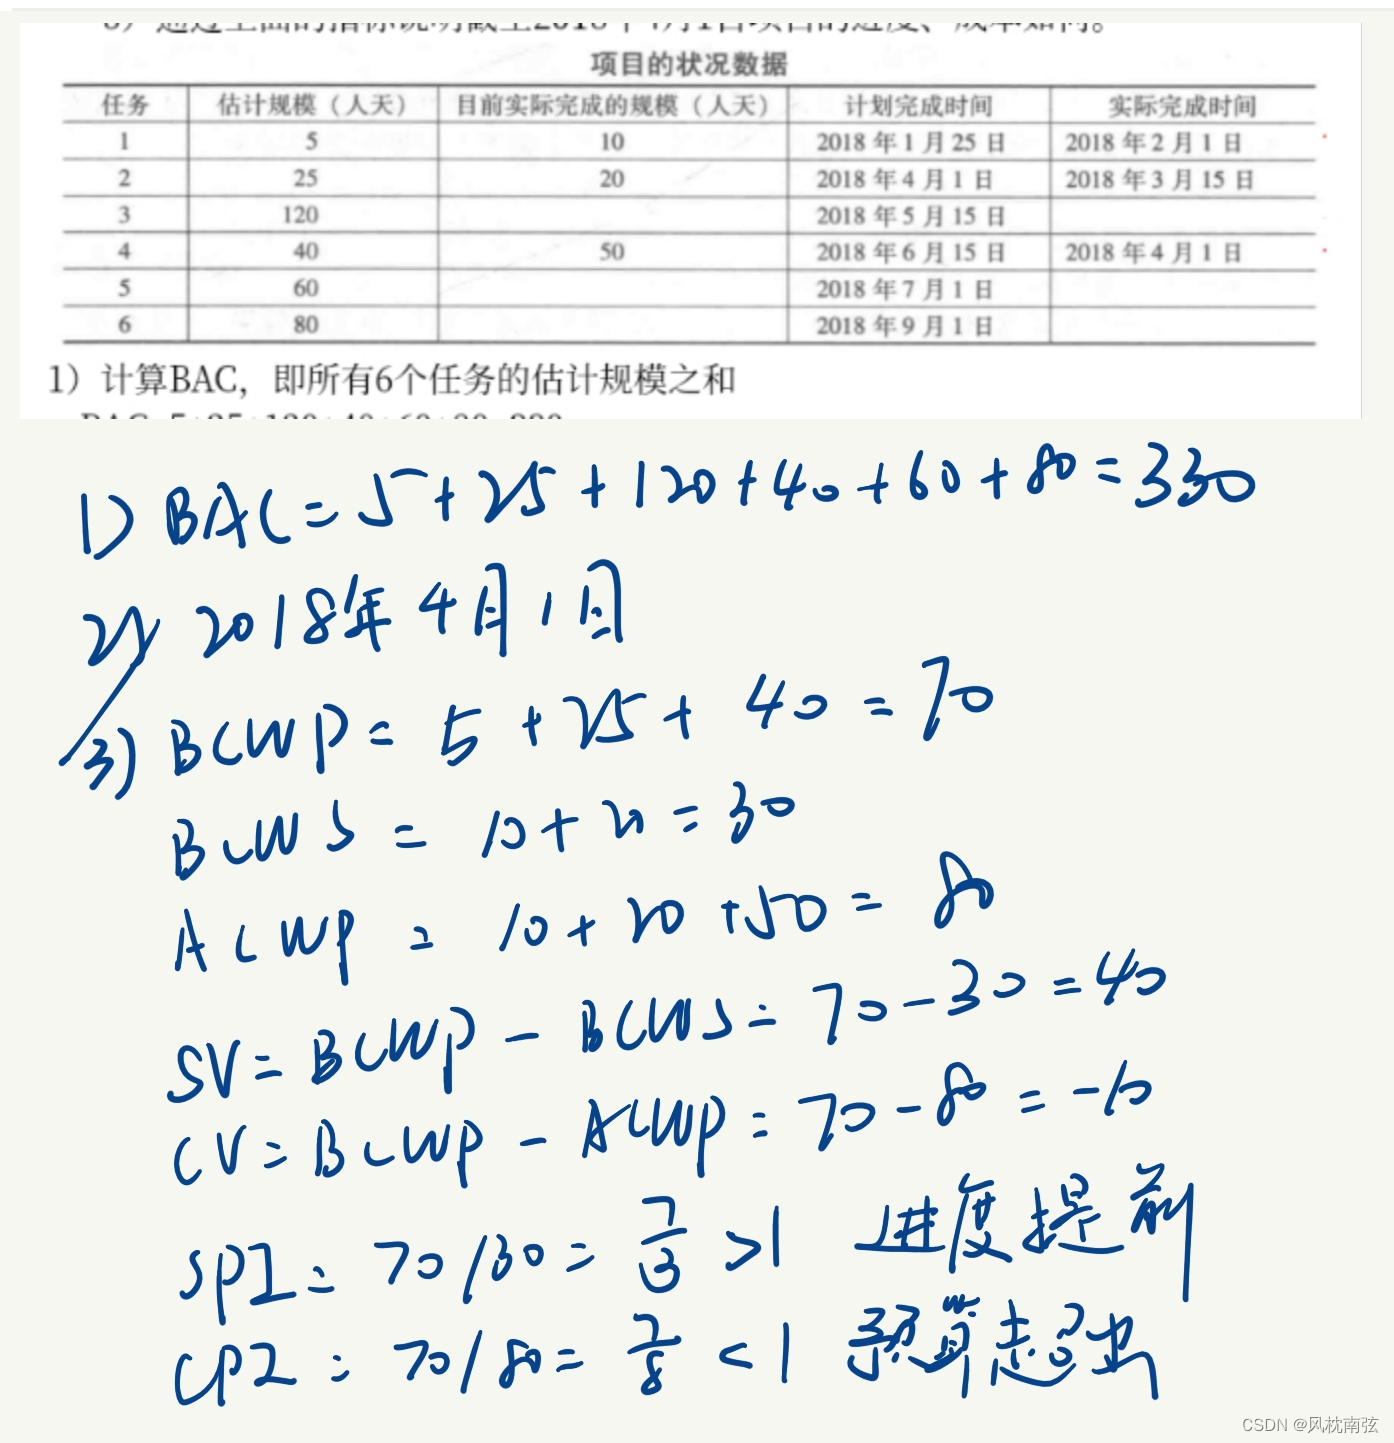 3）通过上面的指标说明截至2018年4月1日项目的进度、成本如何。
项目的状况数据
任务 估计规模（人天） 目前实际完成的规模（人天） 计划完成时间 实际完成时间
1 5 10 2018 年 1 月 25 日 2018 年 2 月 1 日
2 25 20 2018 年 4 月 1 日 2018 年 3 月 15 日
3 120 2018 年 5 月 15 日
4 40 50 2018 年 6 月 15 日 2018 年 4 月 1 日
5 60 2018 年 7 月 1 日
6 80 2018 年 9 月 1 日
1）计算BAC，即所有6个任务的估计规模之和
BAC=5+25+120+40+60+80=330
1) BAC=5+25+120+40+60+80=330
2) 2018年4月1日
3) BCWP=5+25+40=70
BCWS=10+20=30
ACWP=10+20+50=80
SV=BCWP-BCWS=70-30=40
CV=BCWP-ACWP=70-80=-10
SPI=70/30=7/3>1 进度提前
CPI=70/80=7/8<1 预算超出
CSDN @风枕南弦